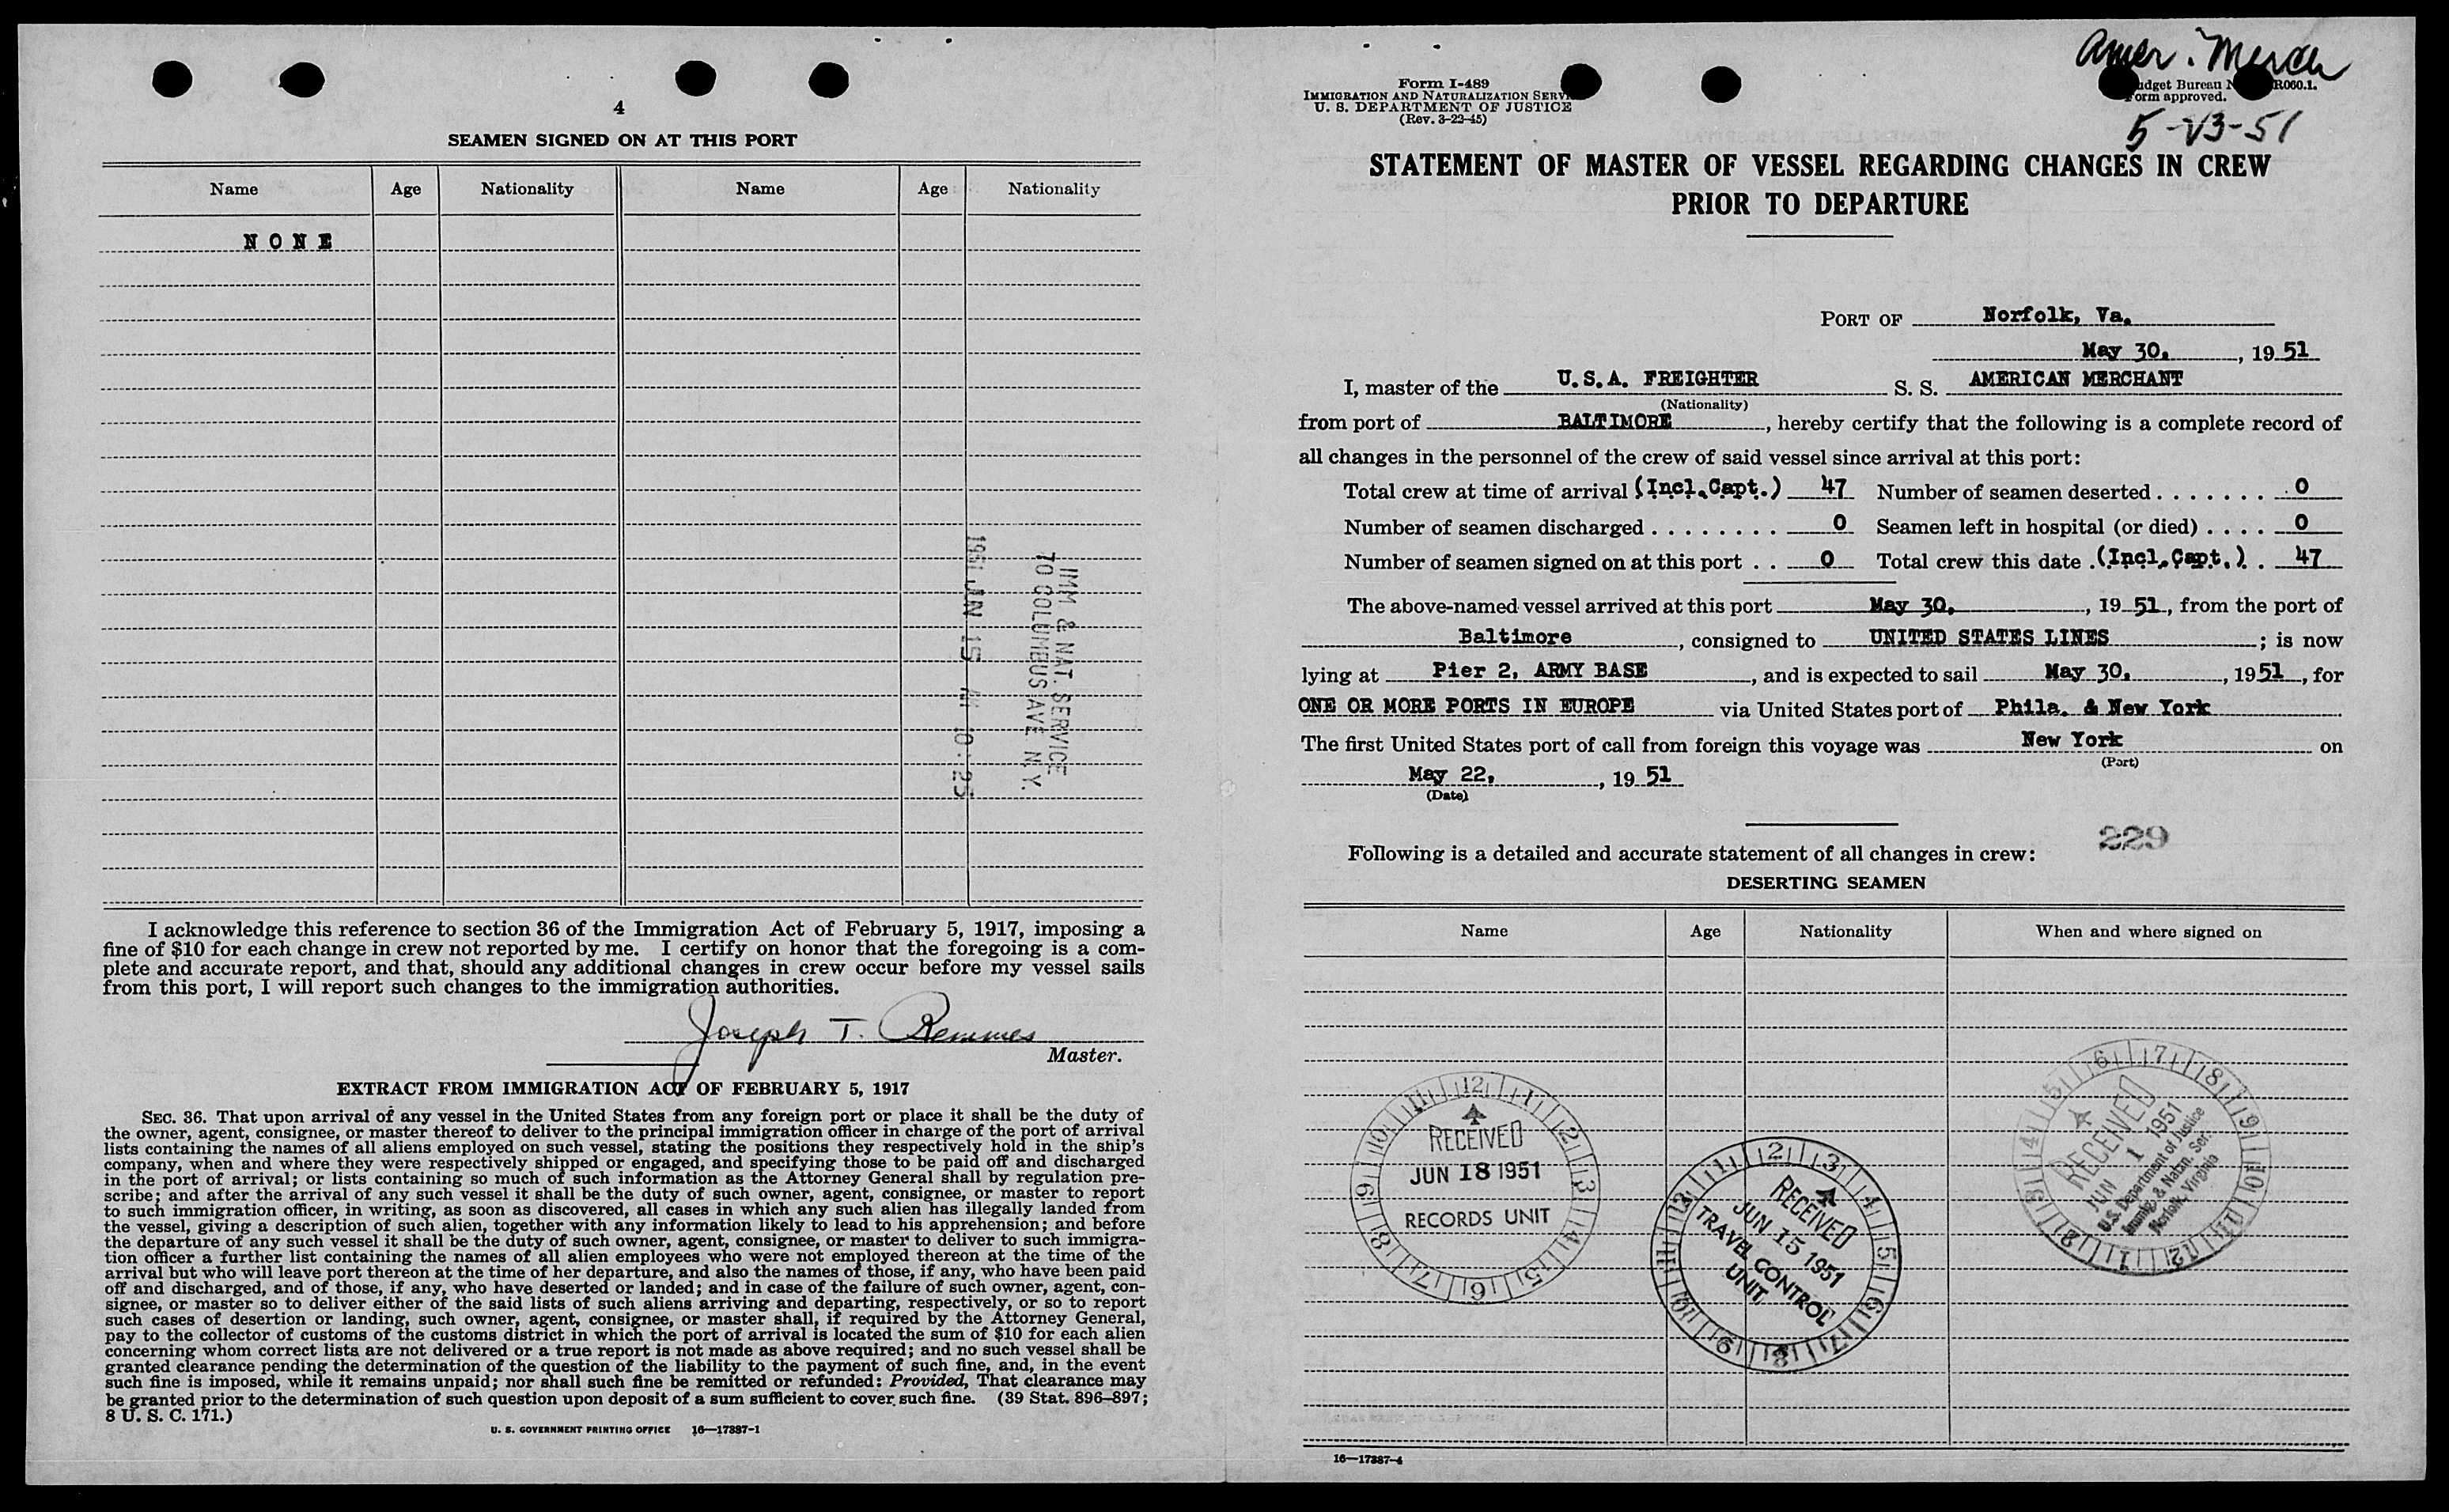 4
SEAMEN SIGNED ON AT THIS PORT
Name Age Nationality Name Age Nationality
NONE
IMM. & NAT. SERVICE
70 COLUMBUS AVE N.Y.
1951 JUN 15 AM 10:25
I acknowledge this reference to section 36 of the Immigration Act of February 5, 1917, imposing a
fine of $10 for each change in crew not reported by me. I certify on honor that the foregoing is a com-
plete and accurate report, and that, should any additional changes in crew occur before my vessel sails
from this port, I will report such changes to the immigration authorities.
Joseph T. Remmes
Master.
EXTRACT FROM IMMIGRATION ACT OF FEBRUARY 5, 1917
SEC. 36. That upon arrival of any vessel in the United States from any foreign port or place it shall be the duty of
the owner, agent, consignee, or master thereof to deliver to the principal immigration officer in charge of the port of arrival
lists containing the names of all aliens employed on such vessel, stating the positions they respectively hold in the ship's
company, when and where they were respectively shipped or engaged, and specifying those to be paid off and discharged
in the port of arrival; or lists containing so much of such information as the Attorney General shall by regulation pre-
scribe; and after the arrival of any such vessel it shall be the duty of such owner, agent, consignee, or master to report
to such immigration officer, in writing, as soon as discovered, all cases in which any such alien has illegally landed from
the vessel, giving a description of such alien, together with any information likely to lead to his apprehension; and before
the departure of any such vessel it shall be the duty of such owner, agent, consignee, or master to deliver to such immigra-
tion officer a further list containing the names of all alien employees who were not employed thereon at the time of the
arrival but who will leave port thereon at the time of her departure, and also the names of those, if any, who have been paid
off and discharged, and of those, if any, who have deserted or landed; and in case of the failure of such owner, agent, con-
signee, or master so to deliver either of the said lists of such aliens arriving and departing, respectively, or so to report
such cases of desertion or landing, such owner, agent, consignee, or master shall, if required by the Attorney General,
pay to the collector of customs of the customs district in which the port of arrival is located the sum of $10 for each alien
concerning whom correct lists are not delivered or a true report is not made as above required; and no such vessel shall be
granted clearance pending the determination of the question of the liability to the payment of such fine, and, in the event
such fine is imposed, while it remains unpaid; nor shall such fine be remitted or refunded: Provided, That clearance may
be granted prior to the determination of such question upon deposit of a sum sufficient to cover such fine. (39 Stat. 896–897;
8 U. S. C. 171.)
U. S. GOVERNMENT PRINTING OFFICE 16—17387-1
Amer. Merch
Form I-489
IMMIGRATION AND NATURALIZATION SERVI
U. S. DEPARTMENT OF JUSTICE
(Rev. 3-22-45)
udget Bureau N R060.1.
orm approved.
5-23-51
STATEMENT OF MASTER OF VESSEL REGARDING CHANGES IN CREW
PRIOR TO DEPARTURE
PORT OF Norfolk, Va.
May 30, , 19 51
I, master of the U.S.A. FREIGHTER S. S. AMERICAN MERCHANT
(Nationality)
from port of BALTIMORE , hereby certify that the following is a complete record of
all changes in the personnel of the crew of said vessel since arrival at this port:
Total crew at time of arrival (Incl.Capt.) 47 Number of seamen deserted . . . . . . . 0
Number of seamen discharged . . . . . . . . 0 Seamen left in hospital (or died) . . . . 0
Number of seamen signed on at this port . . 0 Total crew this date (Incl.Capt.) . 47
The above-named vessel arrived at this port May 30, , 19 51, from the port of
Baltimore , consigned to UNITED STATES LINES ; is now
lying at Pier 2, ARMY BASE , and is expected to sail May 30, , 19 51 , for
ONE OR MORE PORTS IN EUROPE via United States port of Phila. & New York
The first United States port of call from foreign this voyage was New York on
(Port)
May 22, , 19 51
(Date)
229
Following is a detailed and accurate statement of all changes in crew:
DESERTING SEAMEN
Name Age Nationality When and where signed on
12 1 2 3 4 5 6 7 8 9 10 11
RECEIVED
JUN 18 1951
RECORDS UNIT
RECEIVED
JUN 15 1951
TRAVEL CONTROL
UNIT
RECEIVED
JUN 1 1951
U.S. Department of Justice
Immig. & Natzn. Ser.
Norfolk, Virginia
16—17387-4